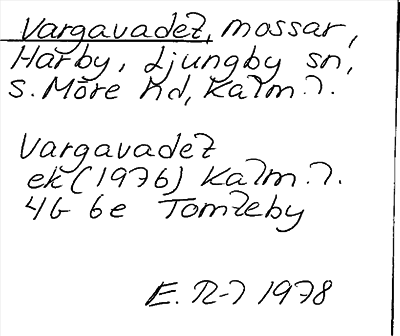 Vargavadet, mossar,
Harby, Ljungby sn,
S. Möre hd, Kalm. l.
Vargavadet
ek (1976) Kalm. l.
4G 6e Tomteby
E. N-l 1978